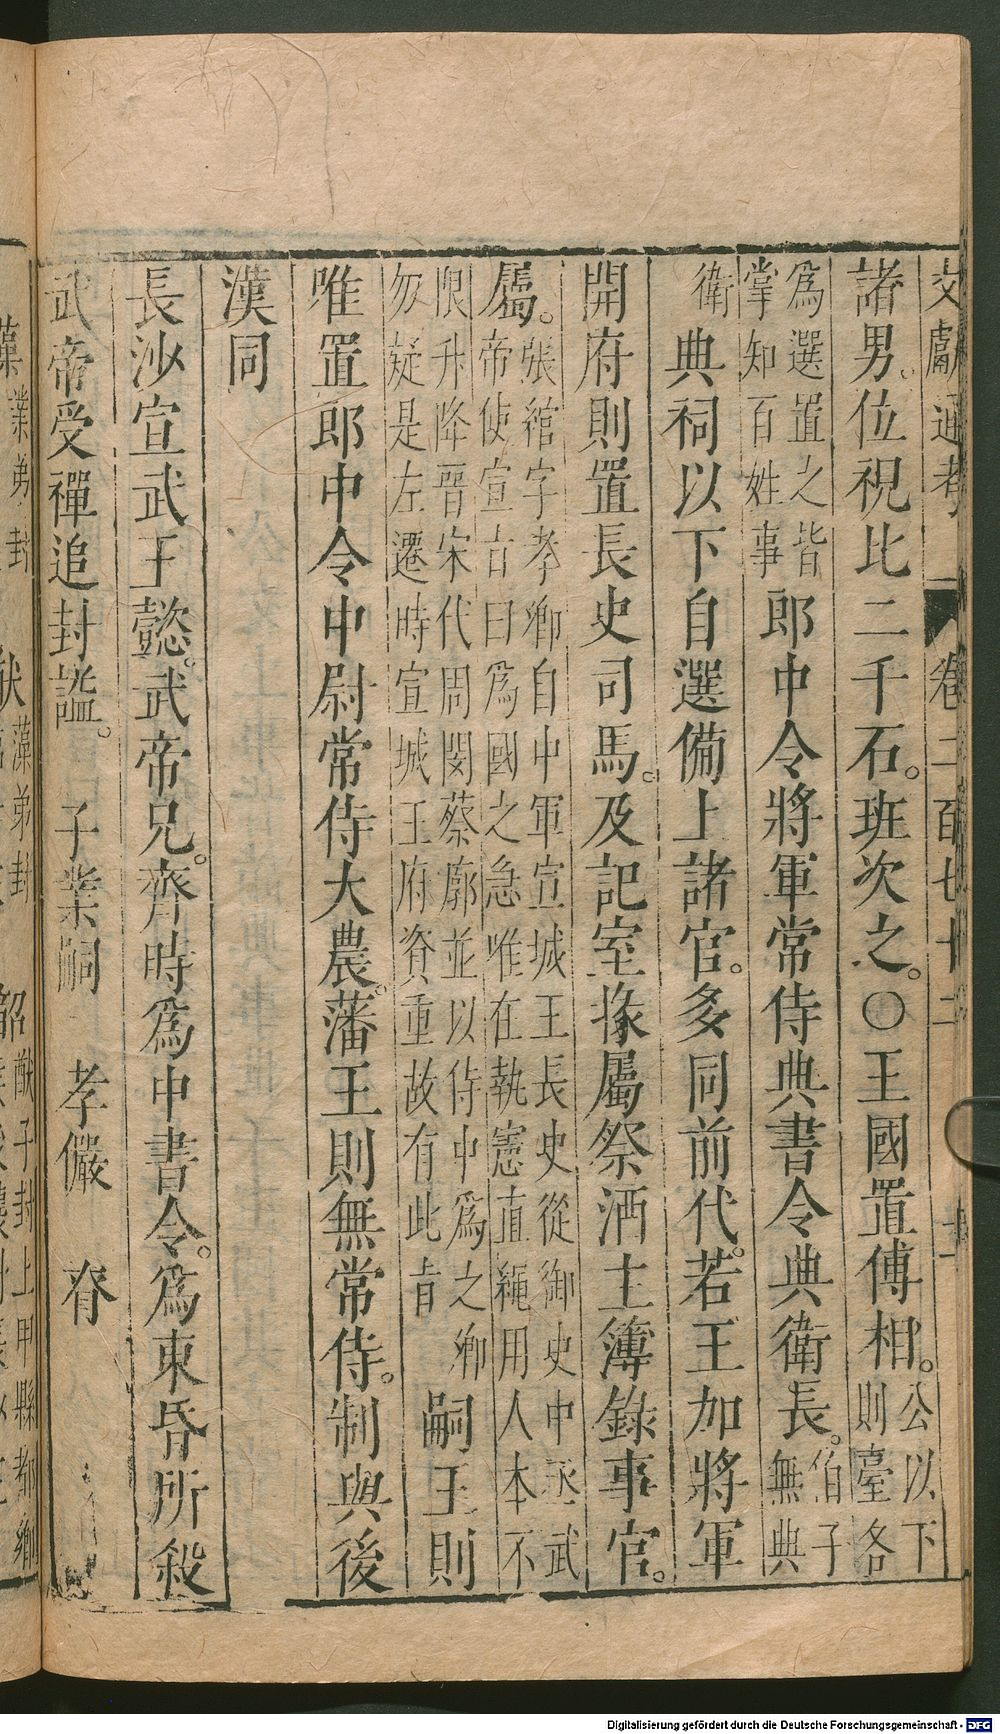 文獻通考 卷二百七十二
諸男位視比二千石班次之○王國置傅相公以下則臺各
爲選置之皆掌知百姓事郎中令將軍常侍典書令典衛長伯子無典
衛典祠以下自選備上諸官多同前代若王加將軍
開府則置長史司馬及記室掾屬祭酒主簿錄事官
屬張綰字孝卿自中軍宣城王長史從御史中丞武帝使宣吉曰爲國之急唯在執憲直繩用人本不
限升降晉宋代周閔蔡廓並以侍中爲之卿勿疑是左遷時宣城王府資重故有此旨嗣王則
唯置郎中令中尉常侍大農藩王則無常侍制與後
漢同
長沙宣武王懿武帝兄齊時爲中書令爲東昏所殺
武帝受禪追封謚 子業嗣 孝儼 眘
Digitalisierung gefördert durch die Deutsche Forschungsgemeinschaft - DFG